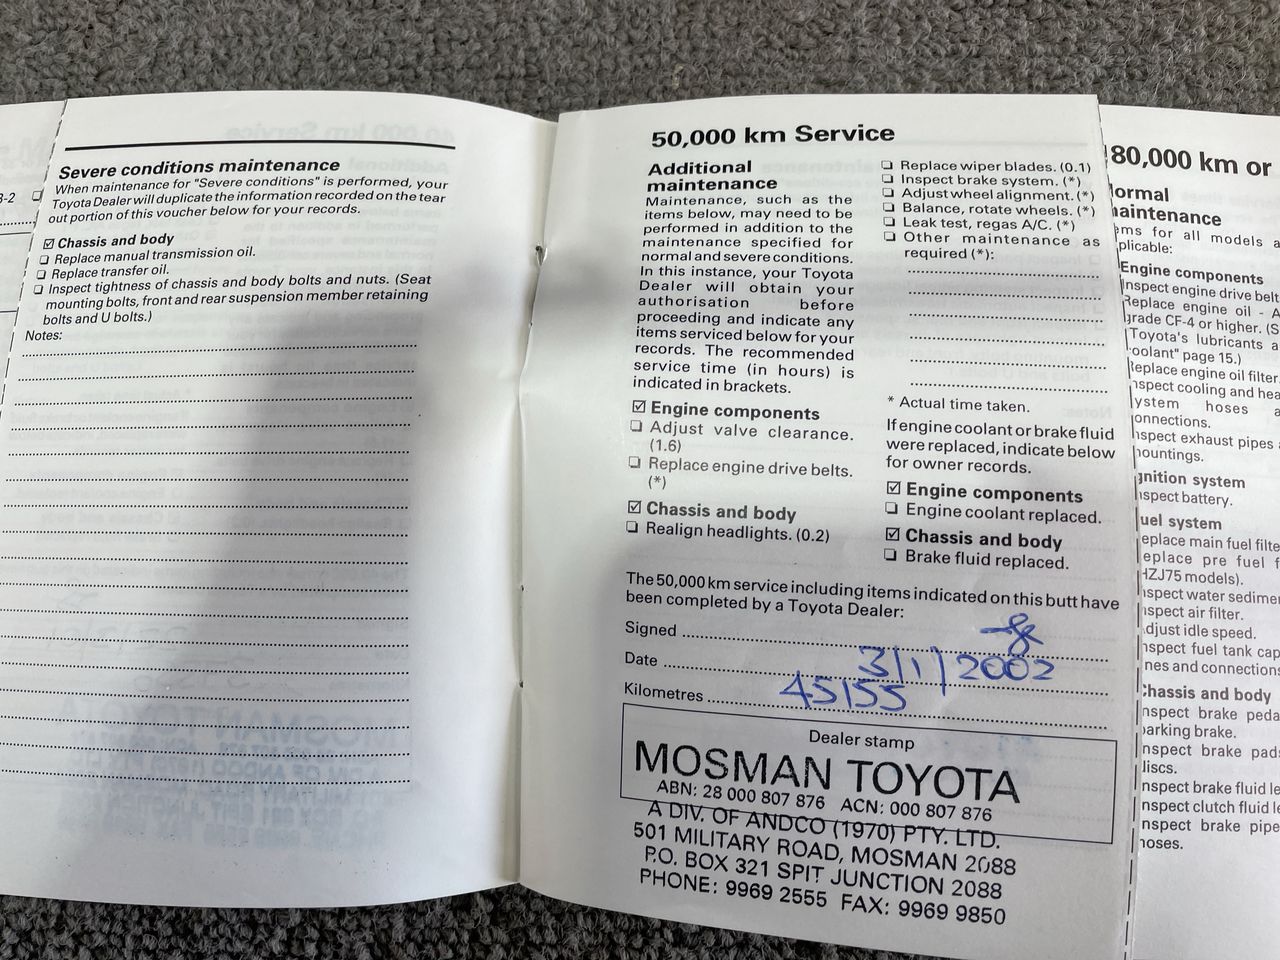 3-2 ❏
Severe conditions maintenance
When maintenance for "Severe conditions" is performed, your
Toyota Dealer will duplicate the information recorded on the tear
out portion of this voucher below for your records.
☑ Chassis and body
❏ Replace manual transmission oil.
❏ Replace transfer oil.
❏ Inspect tightness of chassis and body bolts and nuts. (Seat
mounting bolts, front and rear suspension member retaining
bolts and U bolts.)
Notes:
50,000 km Service
Additional
maintenance
Maintenance, such as the
items below, may need to be
performed in addition to the
maintenance specified for
normal and severe conditions.
In this instance, your Toyota
Dealer will obtain your
authorisation before
proceeding and indicate any
items serviced below for your
records. The recommended
service time (in hours) is
indicated in brackets.
☑ Engine components
❏ Adjust valve clearance.
(1.6)
❏ Replace engine drive belts.
(*)
☑ Chassis and body
❏ Realign headlights. (0.2)
❏ Replace wiper blades. (0.1)
❏ Inspect brake system. (*)
❏ Adjust wheel alignment. (*)
❏ Balance, rotate wheels. (*)
❏ Leak test, regas A/C. (*)
❏ Other maintenance as
required (*):
* Actual time taken.
If engine coolant or brake fluid
were replaced, indicate below
for owner records.
☑ Engine components
❏ Engine coolant replaced.
☑ Chassis and body
❏ Brake fluid replaced.
The 50,000 km service including items indicated on this butt have
been completed by a Toyota Dealer:
Signed
Date 3/1/2002
Kilometres 45155
Dealer stamp
MOSMAN TOYOTA
ABN: 28 000 807 876 ACN: 000 807 876
A DIV. OF ANDCO (1970) PTY. LTD.
501 MILITARY ROAD, MOSMAN 2088
P.O. BOX 321 SPIT JUNCTION 2088
PHONE: 9969 2555 FAX: 9969 9850
80,000 km or
ormal
aintenance
ms for all models a
plicable:
Engine components
nspect engine drive belt
Replace engine oil - A
grade CF-4 or higher. (S
"Toyota's lubricants a
oolant" page 15.)
eplace engine oil filter.
nspect cooling and hea
ystem hoses a
onnections.
nspect exhaust pipes a
ountings.
gnition system
nspect battery.
uel system
eplace main fuel filte
eplace pre fuel f
HZJ75 models).
nspect water sedimen
nspect air filter.
djust idle speed.
nspect fuel tank cap
nes and connections
Chassis and body
nspect brake peda
arking brake.
nspect brake pads
iscs.
nspect brake fluid le
nspect clutch fluid le
nspect brake pipe
oses.